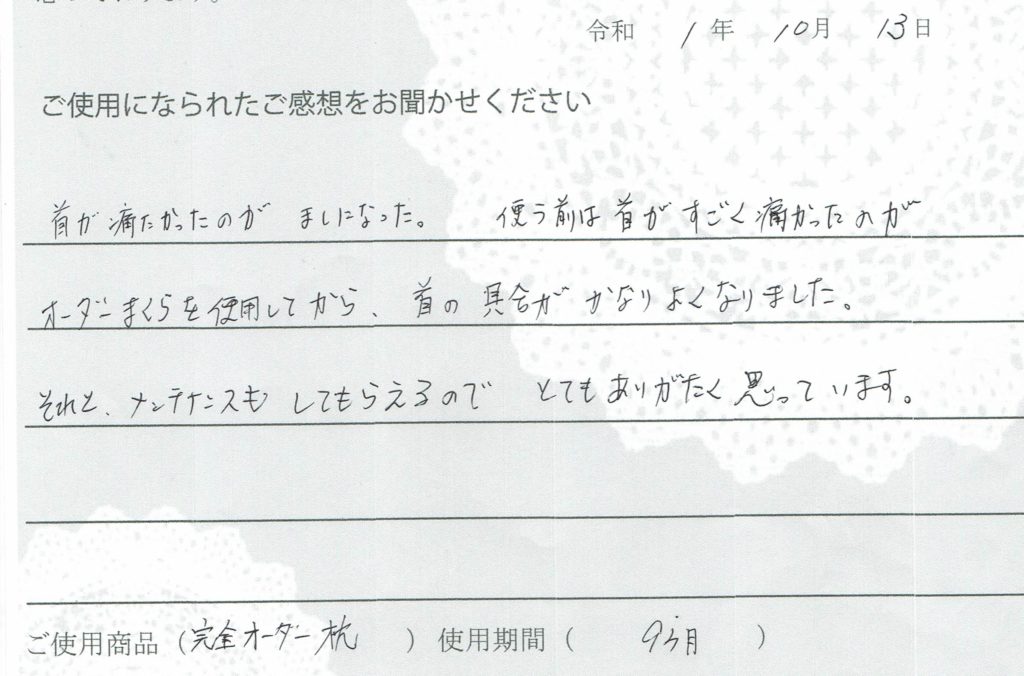 令和 1年 10月 13日
ご使用になられたご感想をお聞かせください
首が痛たかったのが ましになった。 使う前は首がすごく痛かったのが
オーダーまくらを使用してから、首の具合がかなりよくなりました。
それと、メンテナンスもしてもらえるので とてもありがたく思っています。
ご使用商品（完全オーダー枕 ）使用期間（ 9ヶ月 ）